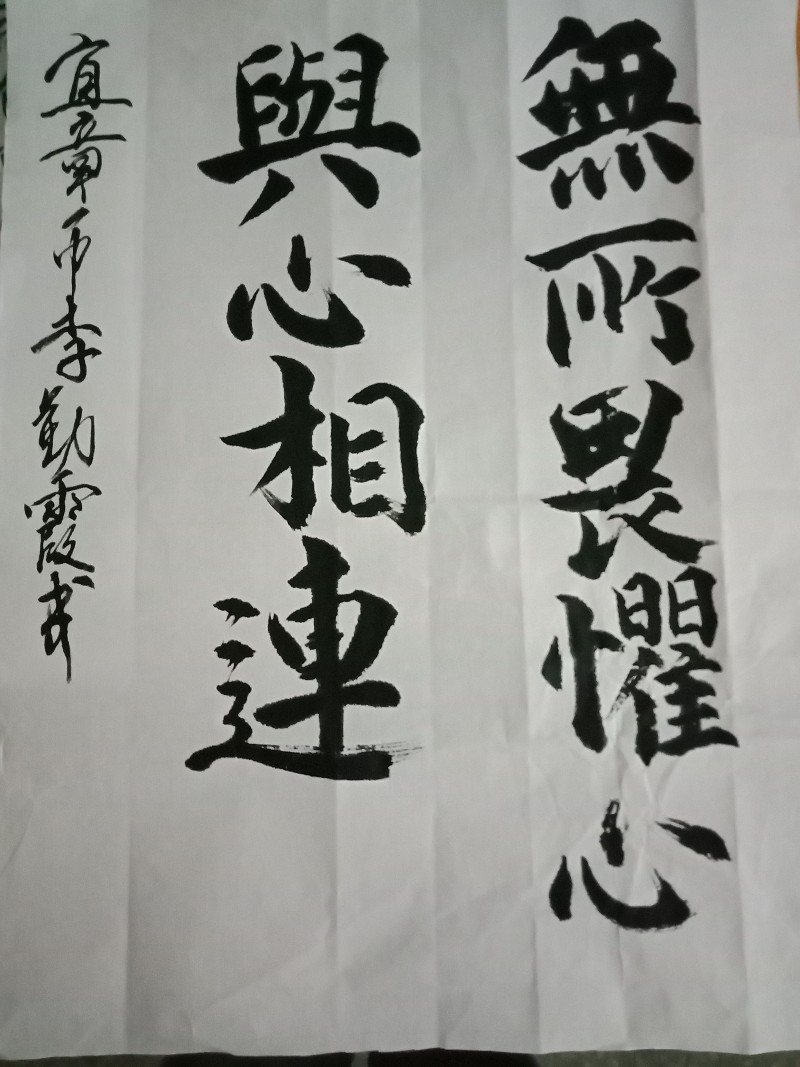 無所畏懼心
與心相連
宜章 李勤霞書